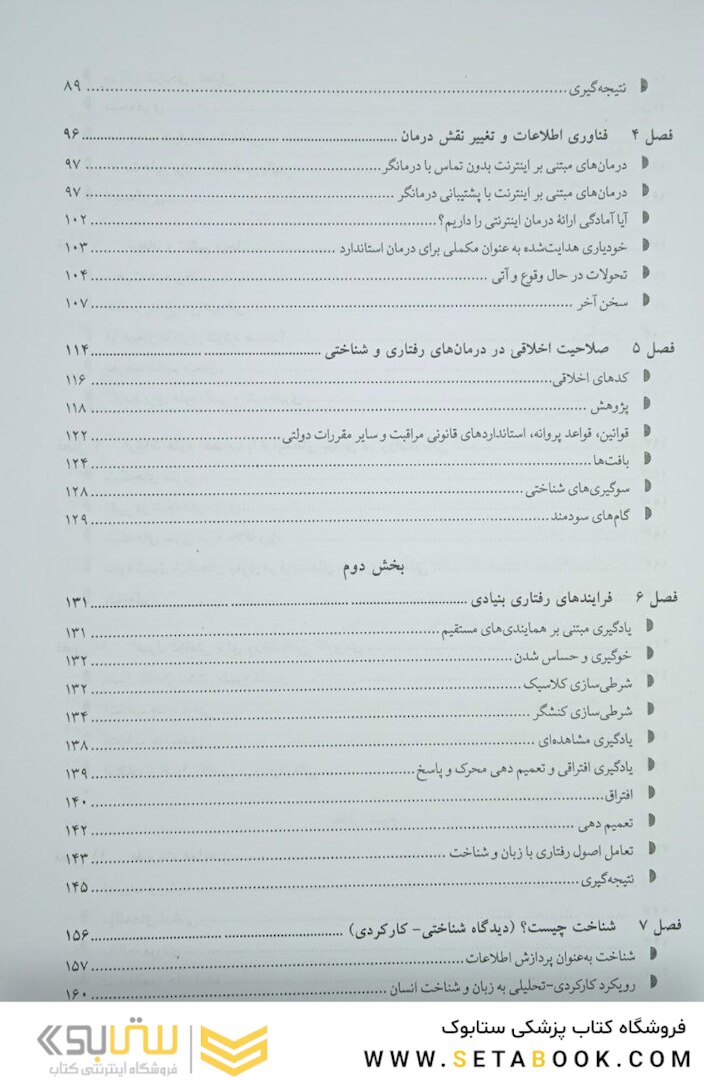 نتیجه‌گیری ........ ۸۹
فصل ۴ فناوری اطلاعات و تغییر نقش درمان ........ ۹۶
درمان‌های مبتنی بر اینترنت بدون تماس با درمانگر ........ ۹۷
درمان‌های مبتنی بر اینترنت با پشتیبانی درمانگر ........ ۹۷
آیا آمادگی ارائهٔ درمان اینترنتی را داریم؟ ........ ۱۰۲
خودیاری هدایت‌شده به عنوان مکملی برای درمان استاندارد ........ ۱۰۳
تحولات در حال وقوع و آتی ........ ۱۰۴
سخن آخر ........ ۱۰۷
فصل ۵ صلاحیت اخلاقی در درمان‌های رفتاری و شناختی ........ ۱۱۴
کدهای اخلاقی ........ ۱۱۶
پژوهش ........ ۱۱۸
قوانین، قواعد پروانه، استانداردهای قانونی مراقبت و سایر مقررات دولتی ........ ۱۲۲
بافت‌ها ........ ۱۲۴
سوگیری‌های شناختی ........ ۱۲۸
گام‌های سودمند ........ ۱۲۹
بخش دوم
فصل ۶ فرایندهای رفتاری بنیادی ........ ۱۳۱
یادگیری مبتنی بر همایندی‌های مستقیم ........ ۱۳۱
خوگیری و حساس شدن ........ ۱۳۲
شرطی‌سازی کلاسیک ........ ۱۳۲
شرطی‌سازی کنشگر ........ ۱۳۴
یادگیری مشاهده‌ای ........ ۱۳۸
یادگیری افتراقی و تعمیم دهی محرک و پاسخ ........ ۱۳۹
افتراق ........ ۱۴۰
تعمیم دهی ........ ۱۴۲
تعامل اصول رفتاری با زبان و شناخت ........ ۱۴۳
نتیجه‌گیری ........ ۱۴۵
فصل ۷ شناخت چیست؟ (دیدگاه شناختی- کارکردی) ........ ۱۵۶
شناخت به‌عنوان پردازش اطلاعات ........ ۱۵۷
رویکرد کارکردی-تحلیلی به زبان و شناخت انسان ........ ۱۶۰
فروشگاه کتاب پزشکی ستابوک
WWW.SETABOOK.COM
ستابوک
فروشگاه اینترنتی کتاب